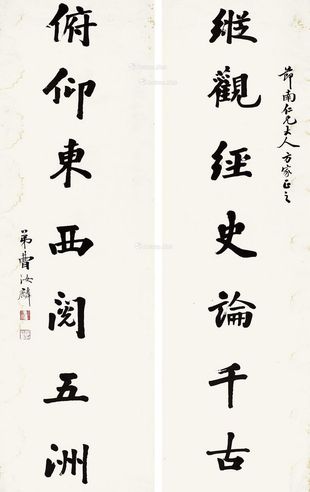 節南仁兄大人方家正之
縱觀經史論千古
俯仰東西閱五洲
弟曹汝麟